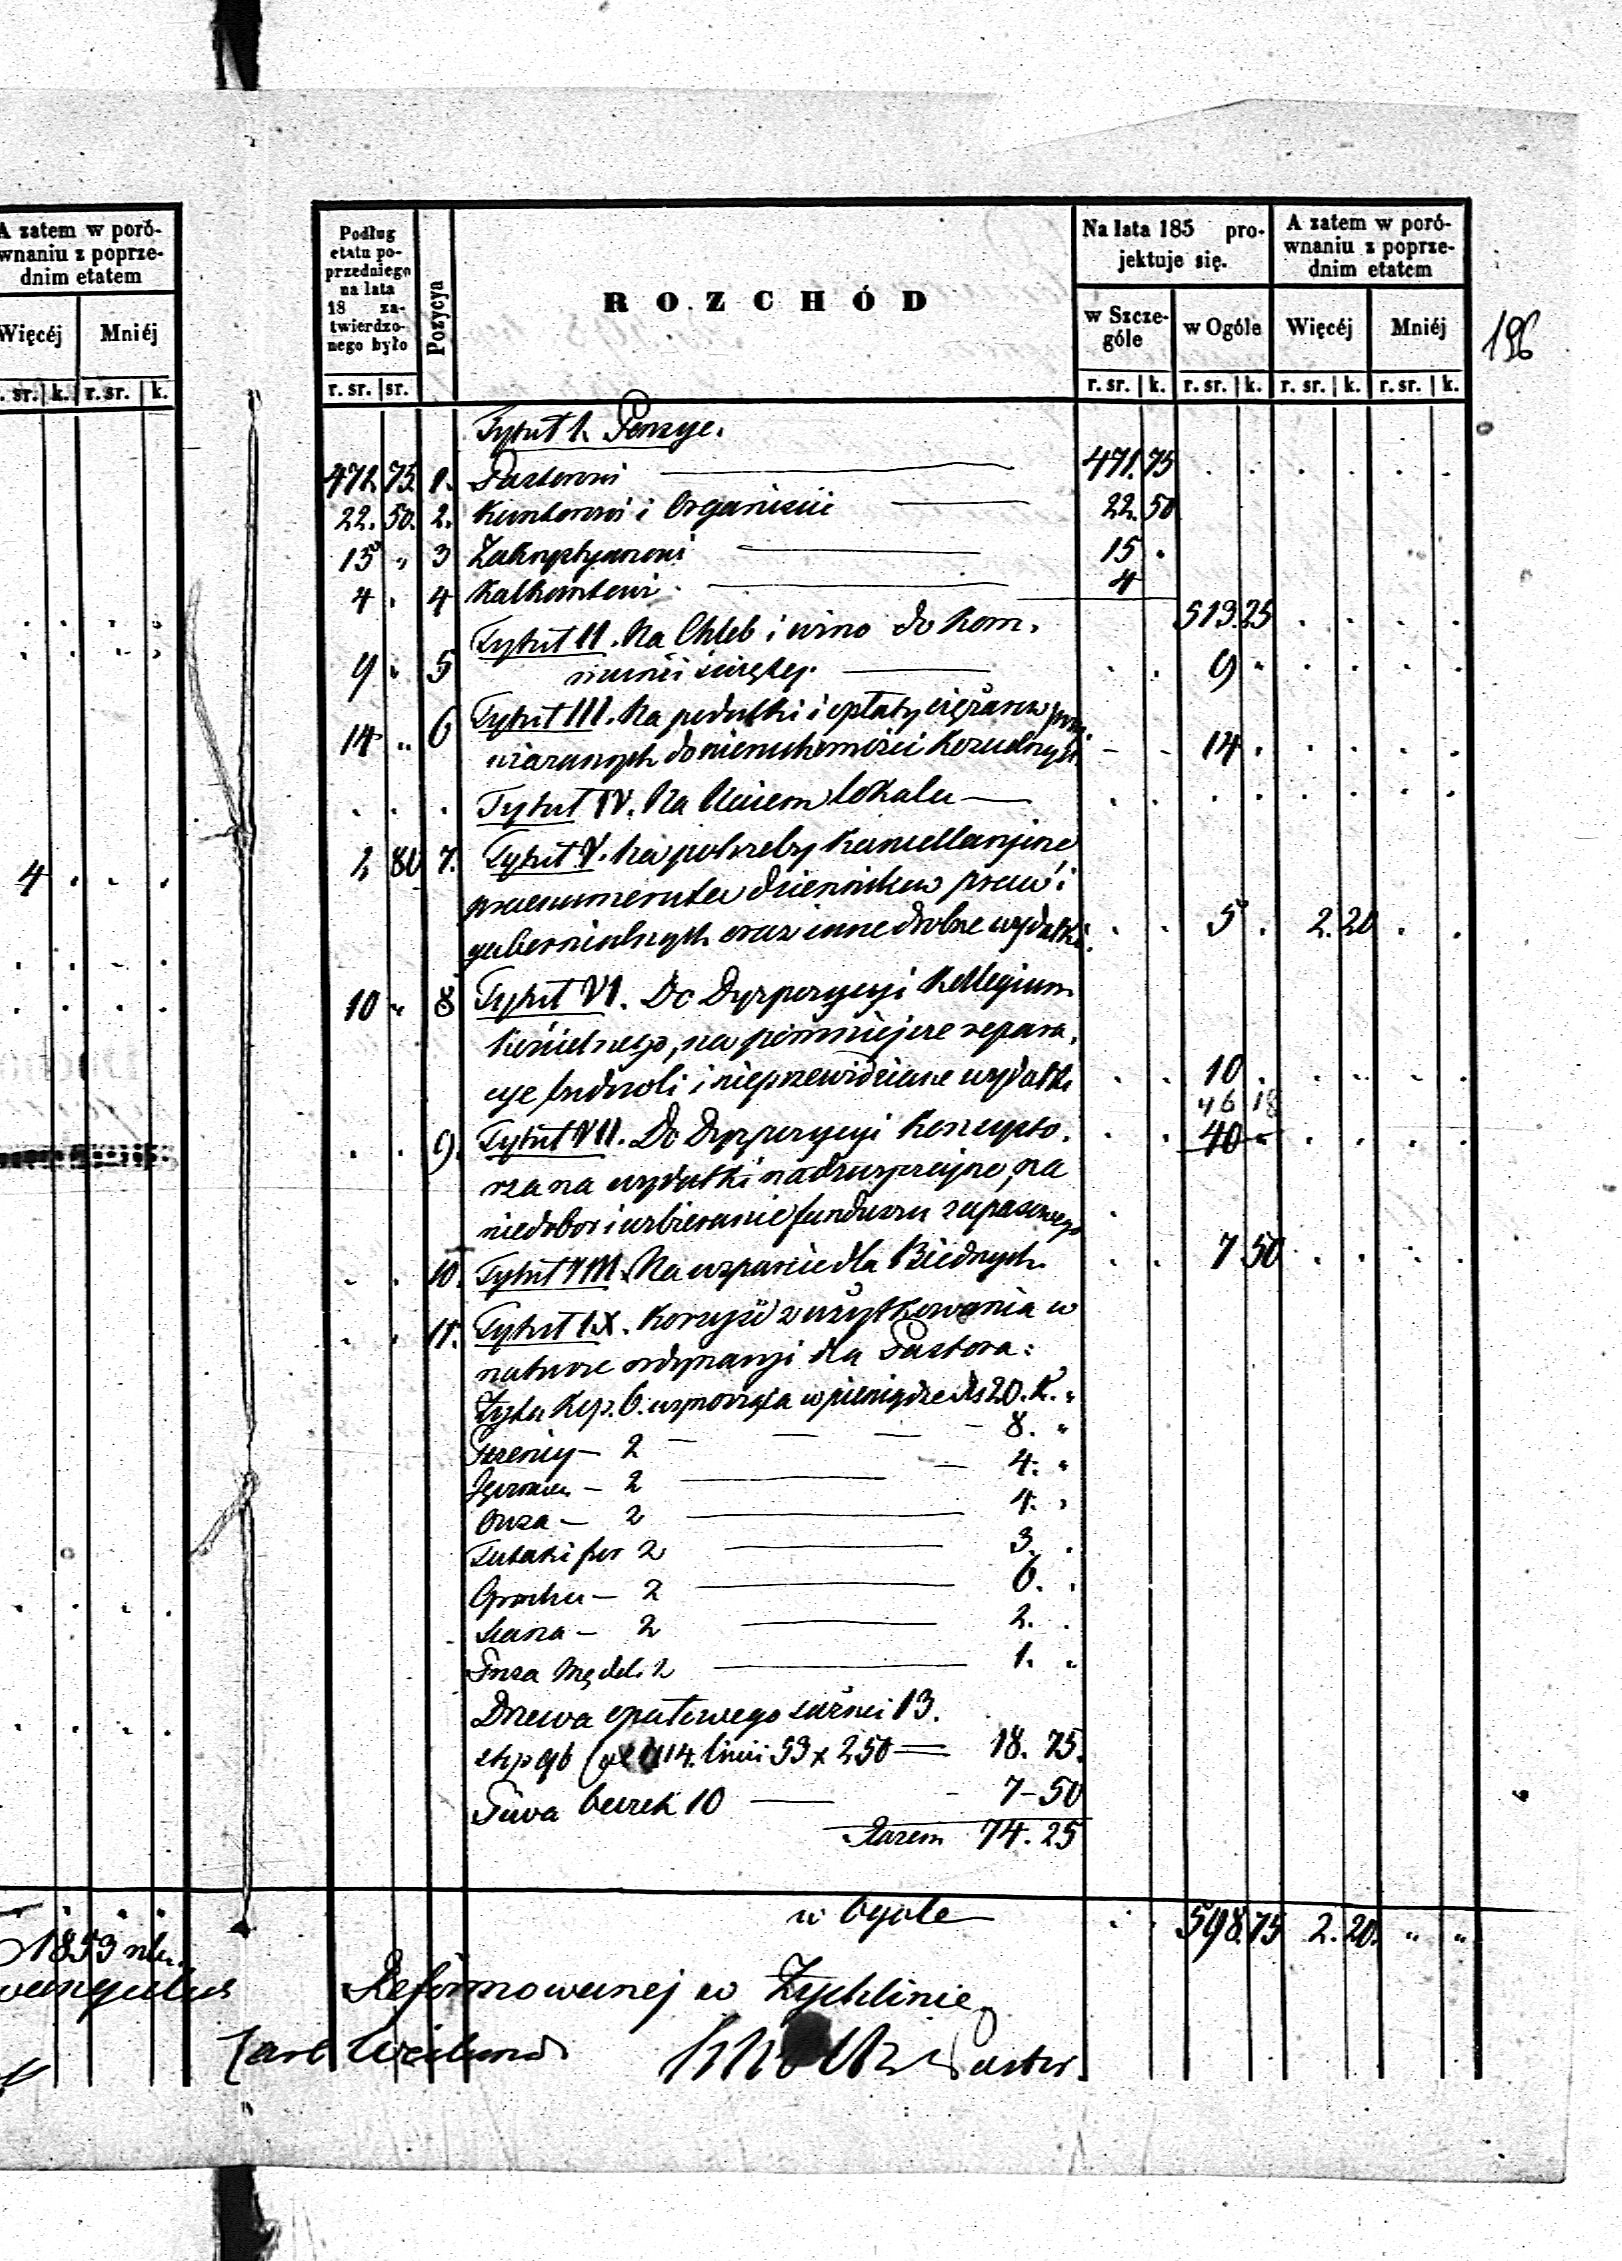 A zatem w poró-
wnaniu z poprze-
dnim etatem
Więcéj Mniéj
r. sr. k. r. sr. k.
4
1853
Podług
etatu po-
przedniego
na lata
18 za-
twierdzo-
nego było
r. sr. sr.
Pozycya
ROZCHÓD
Na lata 185 pro-
jektuje się.
w Szcze-
góle
w Ogóle
r. sr. k. r. sr. k.
A zatem w poró-
wnaniu z poprze-
dnim etatem
Więcéj Mniéj
r. sr. k. r. sr. k.
196
Tytuł I. Pensye.
471. 75. 1. Pastorowi 471. 75
22. 50. 2. Kantorowi i Organiście 22. 50
15 " 3 Zakrystyanowi 15 .
4 . 4 Kalkanciewi 4
513. 25
Tytuł II. Na Chleb i wino do Kom.
9 " 5 munii świętej. 9 "
Tytuł III. Na podatki i opłaty ciężarów przy
14 " 6 wiązanych do nieruchomości Kościelnych 14 .
Tytuł IV. Na Najem lokalu
2 80 7. Tytuł V. Na potrzeby Kancellaryjne
praenumerata dzienników praw i
gubernialnych oraz inne drobne wydatki. 5 . 2. 20
10 " 8 Tytuł VI. Do Dyspozycyi Kollegium
Kościelnego, na pomniejsze repara.
cye budowli i nieprzewidziane wydatki 10 .
46 18
9. Tytuł VII. Do Dyspozycyi Konsysto. 40 "
rza na wydatki nadzwyczajne, na
niedobor i uzbieranie funduszu zapasowego
10. Tytuł VIII. Na wsparcie dla Biednych. 7 50
11. Tytuł IX. Korzyść z użytkowania w
naturze ordynaryi dla Pastora:
Żyta Krp. 6. wynosząca w pieniądze Rs 20. K. "
Pszenicy – 2 8. "
Jęczmien – 2 4. "
Owsa – 2 4. "
Tatarki 2 3. .
Grochu – 2 6. .
Siana – 2 2. .
Mędel. 2 1. "
Drzewa opałowego sążni 13.
114. linii 53 x 250 18. 75.
Piwa beczek 10 7 – 50
Razem 74. 25
w Ogóle 598. 75 2. 20. " "
Reformowanej w Żychlinie
Pastor.